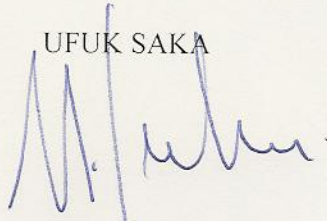 UFUK SAKA